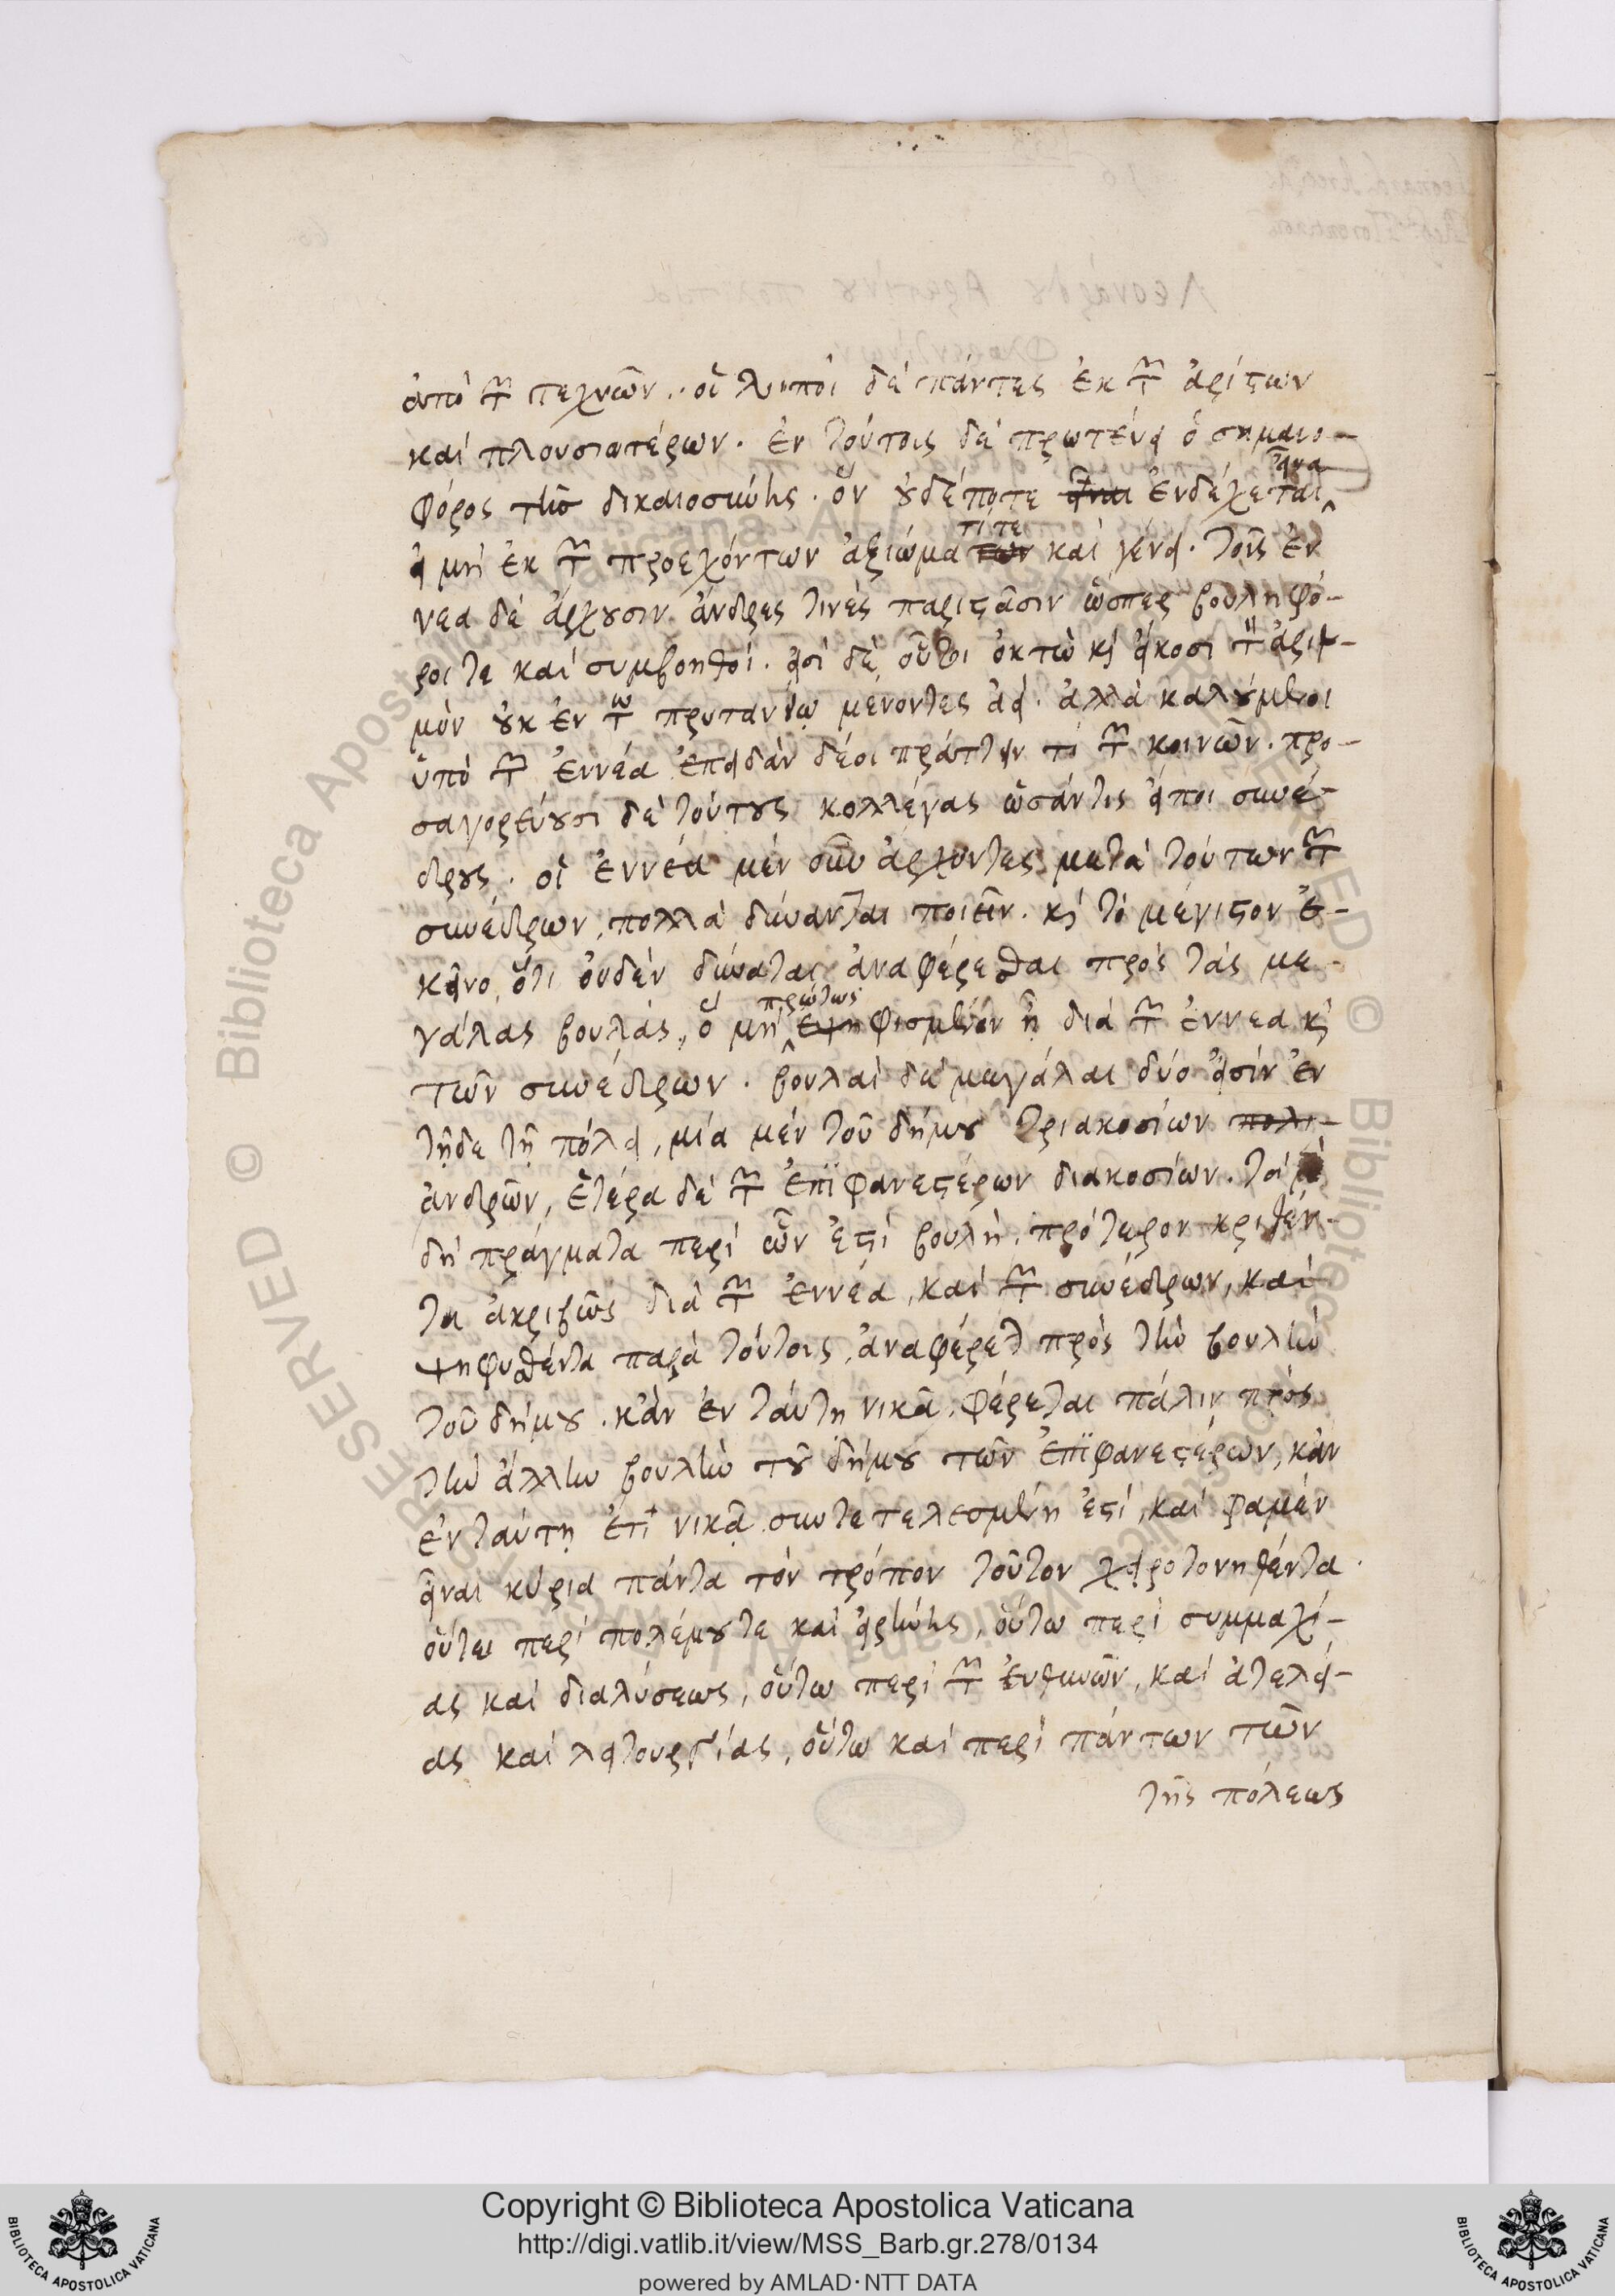 ἀπὸ τῶν τεχνῶν· οἱ λοιποὶ δὲ πάντες ἐκ τῶν ἀρίστων
καὶ πλουσιωτέρων. ἐν τούτοις δὲ πρωτεύει ὁ σημαιο-
φόρος τῆς δικαιοσύνης. ὃν οὐδέποτε ἐνδέχεται εἶναι
εἰ μὴ ἐκ τῶν προεχόντων ἀξιώματί τε καὶ γένει. τοῖς ἐν
νέα δὲ ἄρχουσιν ἄνδρες τινὲς παριστᾶσιν ὥσπερ βουληφό-
ροι τε καὶ συμβοηθοί. εἰσὶ δὲ οὗτοι ὀκτὼ καὶ εἴκοσι τὸν ἀριθ-
μὸν οὐκ ἐν τῷ πρυτανείῳ μένοντες ἀεὶ. ἀλλὰ καλούμενοι
ὑπὸ τῶν ἐννέα ἐπειδὰν δέοι πράττειν τι τῶν κοινῶν. προ-
σαγορεύουσι δὲ τούτους κολλέγας ὡσάν τις εἴποι συνέ-
δρους. οἱ ἐννέα μὲν οὖν ἄρχοντες μετὰ τούτων τῶν
συνέδρων, πολλὰ δύνανται ποιεῖν. καὶ τὸ μέγιστον ἐ-
κεῖνο, ὅτι οὐδὲν δύναται ἀναφέρεσθαι πρὸς τὰς με-
γάλας βουλάς, ὃ μὴ πρώτως ἐψηφισμένον ᾖ διὰ τῶν ἐννέα καὶ
τῶν συνέδρων. βουλαὶ δὲ μεγάλαι δύο εἰσὶν ἐν
τῇδε τῇ πόλει, μία μὲν τοῦ δήμου τριακοσίων
ἀνδρῶν, ἑτέρα δὲ τῶν ἐπιφανεστέρων διακοσίων. τὰ
δὴ πράγματα περὶ ὧν ἐστὶ βουλὴ, πρότερον κριθέν-
τα ἀκριβῶς διὰ τῶν ἐννέα, καὶ τῶν συνέδρων, καὶ
ψηφισθέντα παρὰ τούτοις, ἀναφέρεται πρὸς τὴν βουλὴν
τοῦ δήμου. κἂν ἐν ταύτῃ νικᾷ, φέρεται πάλιν πρὸς
τὴν ἄλλην βουλὴν τοῦ δήμου τῶν ἐπιφανεστέρων, κἂν
ἐν ταύτῃ ἔτι νικᾷ συντετελεσμένη ἐστί, καὶ φαμὲν
εἶναι κύρια πάντα τὸν τρόπον τοῦτον χειροτονηθέντα.
οὕτω περὶ πολέμου τε καὶ εἰρήνης, οὕτω περὶ συμμαχί-
ας καὶ διαλύσεως, οὕτω περὶ τῶν εὐθυνῶν, καὶ ἀτελεί-
ας καὶ λειτουργίας, οὕτω καὶ περὶ πάντων τῶν
τῆς πόλεως
Copyright © Biblioteca Apostolica Vaticana
http://digi.vatlib.it/view/MSS_Barb.gr.278/0134
powered by AMLAD·NTT DATA